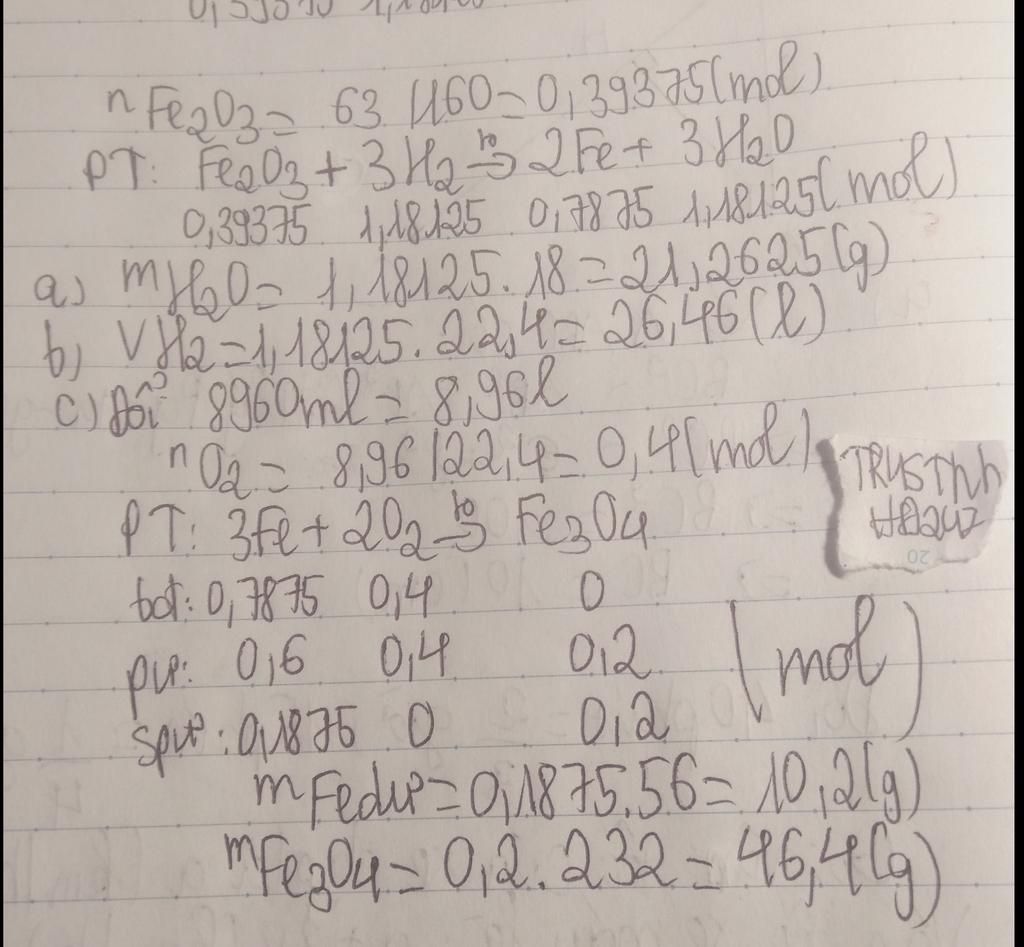 nFe2O3 = 63/160 = 0,39375(mol)
PT: Fe2O3 + 3H2 →t° 2Fe + 3H2O
0,39375 1,18125 0,7875 1,18125(mol)
a) mH2O = 1,18125.18 = 21,2625(g)
b) VH2 = 1,18125.22,4 = 26,46(l)
c) Đổi 8960ml = 8,96l
nO2 = 8,96/22,4 = 0,4(mol)
PT: 3Fe + 2O2 →t° Fe3O4
bđ: 0,7875 0,4 0
pư: 0,6 0,4 0,2 (mol)
spư: 0,1875 0 0,2
mFedư = 0,1875.56 = 10,2(g)
mFe3O4 = 0,2.232 = 46,4(g)
20